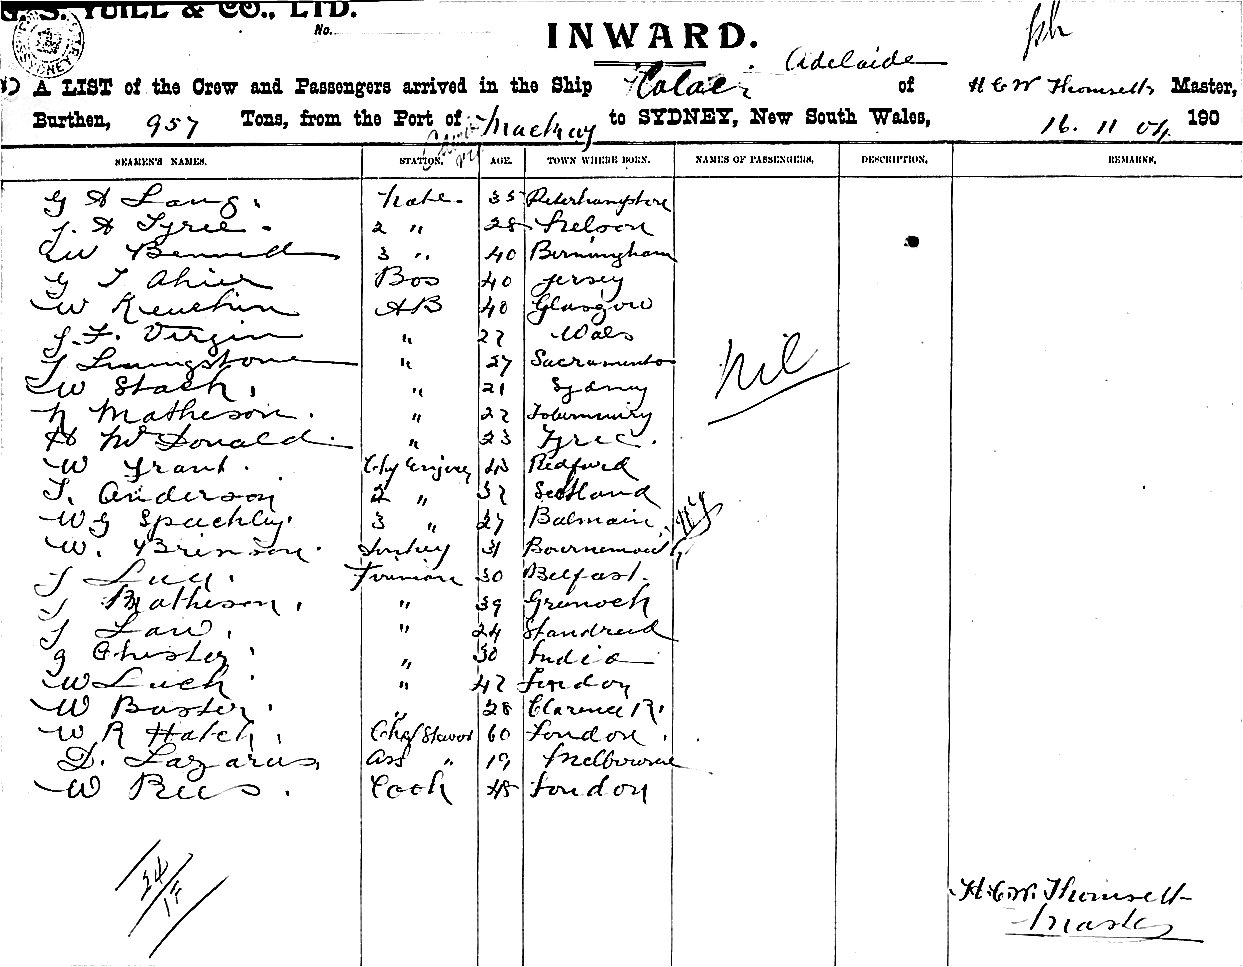 G. S. YUILL & CO., LTD.
No.
INWARD.
A LIST of the Crew and Passengers arrived in the Ship Adelaide of H C W Thomsett Master,
Burthen, 957 Tons, from the Port of Mackay to SYDNEY, New South Wales, 16. 11 04 190
SEAMEN'S NAMES. STATION. AGE. TOWN WHERE BORN. NAMES OF PASSENGERS. DESCRIPTION. REMARKS.
G A Lang. Mate. 35
J. A Tyree. 2 " 28 Nelson
W Benned 3 " 40 Birmingham
G T Ahier Bos 40 Jersey
W AB 40 Glasgow
J. F. Virgin " 27 Wales
Livingstone " 27 Sacramento
W Stach. " 21 Sydney
N Matheson. " 22 Tobermory
A McDonald. " 23 Tyree.
W Grant. Chf Enginr Redford
T. Anderson 2 " 37 Scotland
W G Spachly. 3 " 27 Balmain
W. Brinson. 31 Bournemout
J Lucy. Fireman 30 Belfast.
J Matheson. " 39 Greenock
J Law. " 24
G Chister. " 30 India
W Luch. " 42 London
W Baster. " 28 Clarence R.
W R Hatch. Chf Steward 60 London.
D. Lazarus Ass " 19 Melbourne
W Rees. Cook 48 London
Nil
24/17
H. C. W. Thomsett
Master